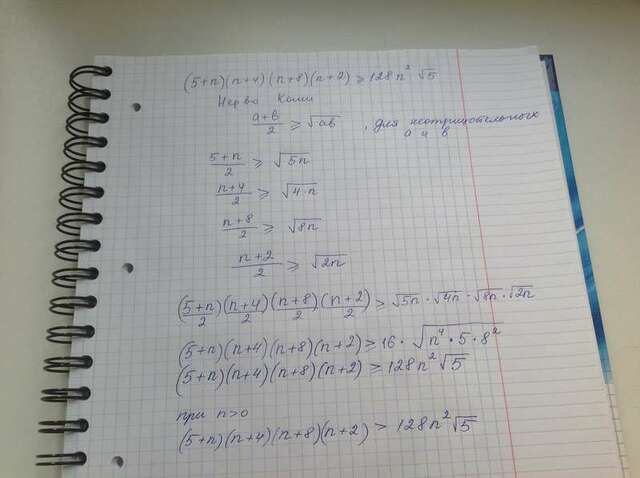 (5+n)(n+4)(n+8)(n+2) ≥ 128n² √5
Нер-во Коши
(a+в)/2 ≥ √aв , для неотрицательных
а и в
(5+n)/2 ≥ √5n
(n+4)/2 ≥ √4·n
(n+8)/2 ≥ √8n
(n+2)/2 ≥ √2n
((5+n)/2)((n+4)/2)((n+8)/2)((n+2)/2) ≥ √5n · √4n · √8n · √2n
(5+n)(n+4)(n+8)(n+2) ≥ 16 · √n⁴ · 5 · 8²
(5+n)(n+4)(n+8)(n+2) ≥ 128n²√5
при n>0
(5+n)(n+4)(n+8)(n+2) > 128n²√5